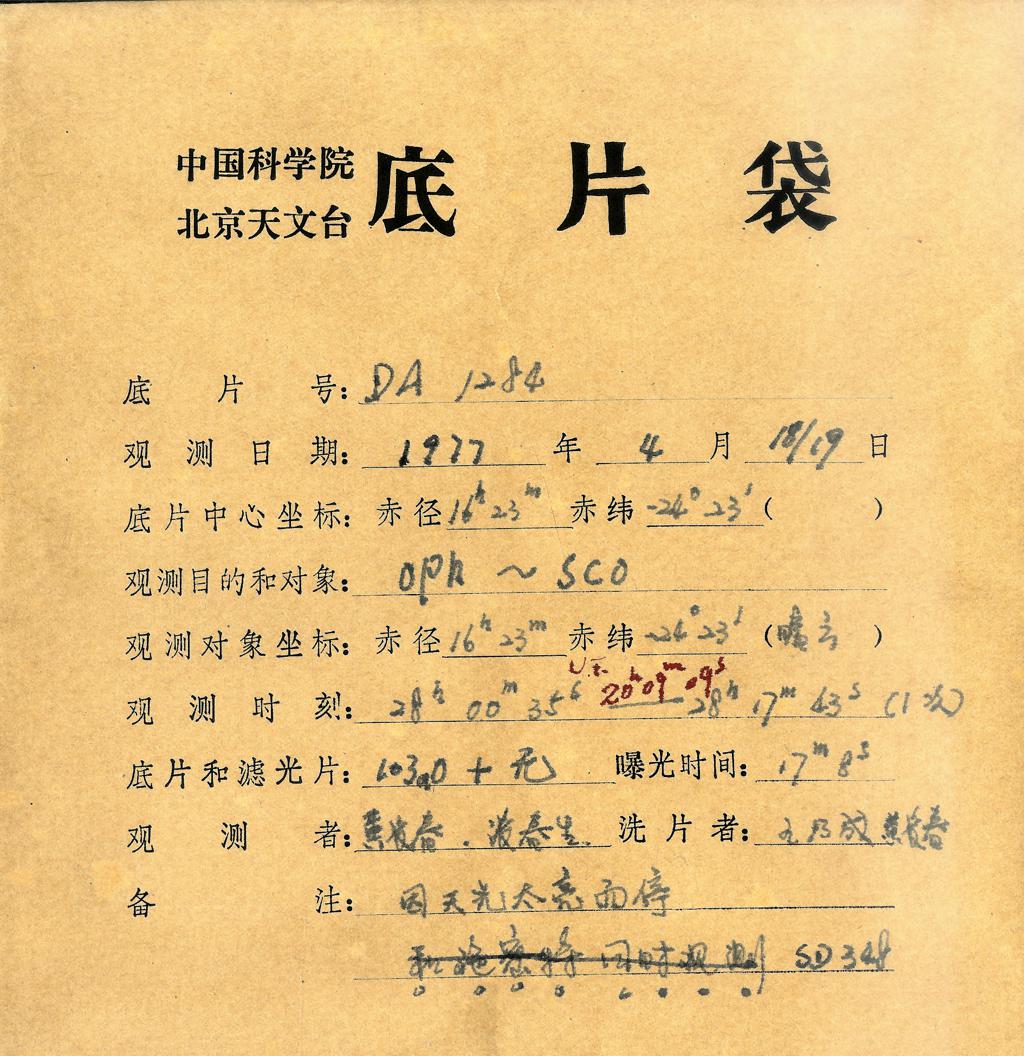 中国科学院
北京天文台
底片袋
底片号: DA 1284
观测日期: 1977 年 4 月 18/19 日
底片中心坐标: 赤径 16h 23m 赤纬 -24° 23′ ( )
观测目的和对象: OPh ~ SCO
观测对象坐标: 赤径 16h 23m 赤纬 -24° 23′ ( )
U.T. 20h 09m 09s
观测时刻: 28h 00m 35s — 28h 17m 43s (1次)
底片和滤光片: 103aO + 无 曝光时间: 17m 8s
观测者: 洗片者: 王乃成
备注: 因天光太亮而停
和施密特同时观测 SD348